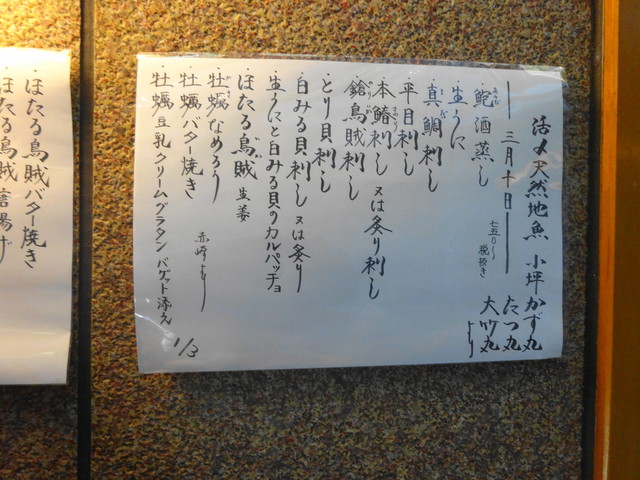 活〆天然地魚 小坪 かず丸
たつ丸
大竹丸
より
三月十日
七五〇〜 税抜き
鮑酒蒸し
・生うに
・真鯛刺し
・平目刺し
・本鰆刺し 又は炙り刺し
・鎗烏賊刺し
・とり貝刺し
・白みる貝刺し 又は炙り
・生うにと白みる貝のカルパッチョ
・ほたる烏賊 生姜
・牡蠣なめろう
・牡蠣バター焼き 赤崎より
・牡蠣豆乳クリームグラタン バゲット添え
1/3
・ほたる烏賊バター焼き
ほたる烏賊唐揚げ